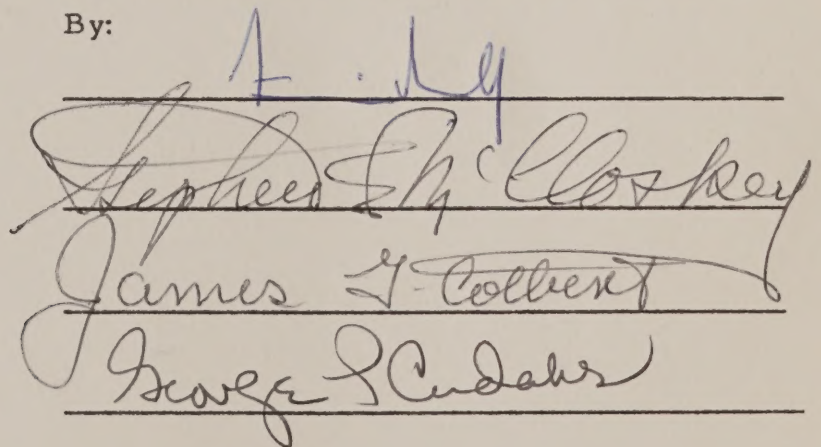 By:
Stephen E Mc Closkey
James G. Colbert
George